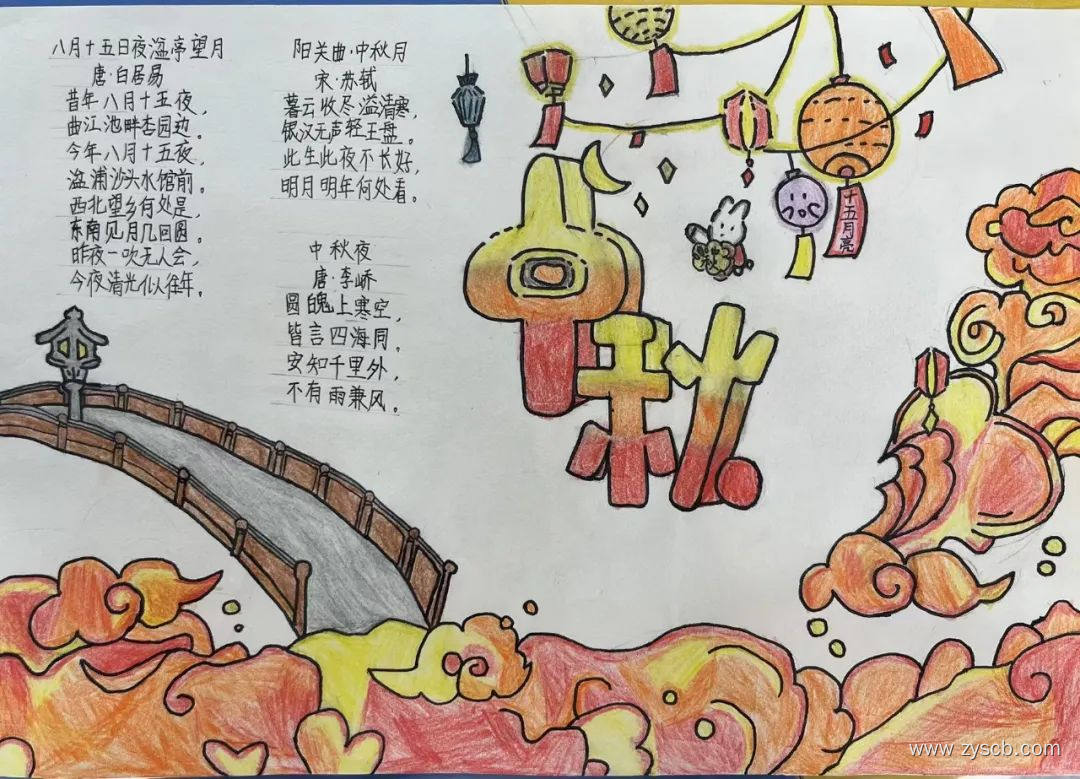 八月十五日夜湓亭望月
唐·白居易
昔年八月十五夜，
曲江池畔杏园边。
今年八月十五夜，
湓浦沙头水馆前。
西北望乡何处是，
东南见月几回圆。
昨夜一吹无人会，
今夜清光似往年。
阳关曲·中秋月
宋·苏轼
暮云收尽溢清寒，
银汉无声轻玉盘。
此生此夜不长好，
明月明年何处看。
中秋夜
唐·李峤
圆魄上寒空，
皆言四海同。
安知千里外，
不有雨兼风。
中秋
十五月亮
www.zyscb.com